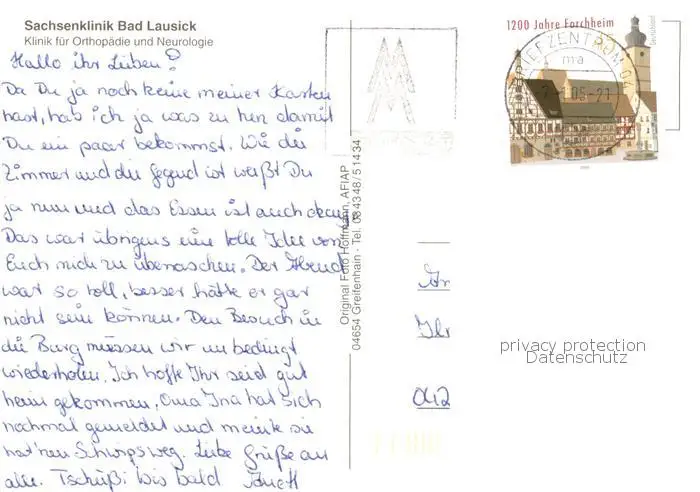 Sachsenklinik Bad Lausick
Klinik für Orthopädie und Neurologie
Hallo ihr Lieben!
Da Du ja noch keine meiner Karten
hast, hab ich ja was zu tun damit
Du ein paar bekommst. Wie die
Zimmer und die Gegend ist weißt Du
ja nun und das Essen ist auch okay.
Das war übrigens eine tolle Idee von
Euch mich zu überraschen. Der Abend
war so toll, besser hätte er gar
nicht sein können. Den Besuch in
die Burg müssen wir unbedingt
wiederholen. Ich hoffe Ihr seid gut
heim gekommen, Oma Ina hat sich
nochmal gemeldet und meinte sie
hat 'nen Schwips weg. Liebe Grüße an
alle. Tschüßi bis bald
Original Foto Hoffmann, AFIAP
04654 Greifenhain - Tel. 034348/51434
1200 Jahre Forchheim
55
Deutschland
BRIEFZENTRUM 04
ma
An
042
privacy protection
Datenschutz